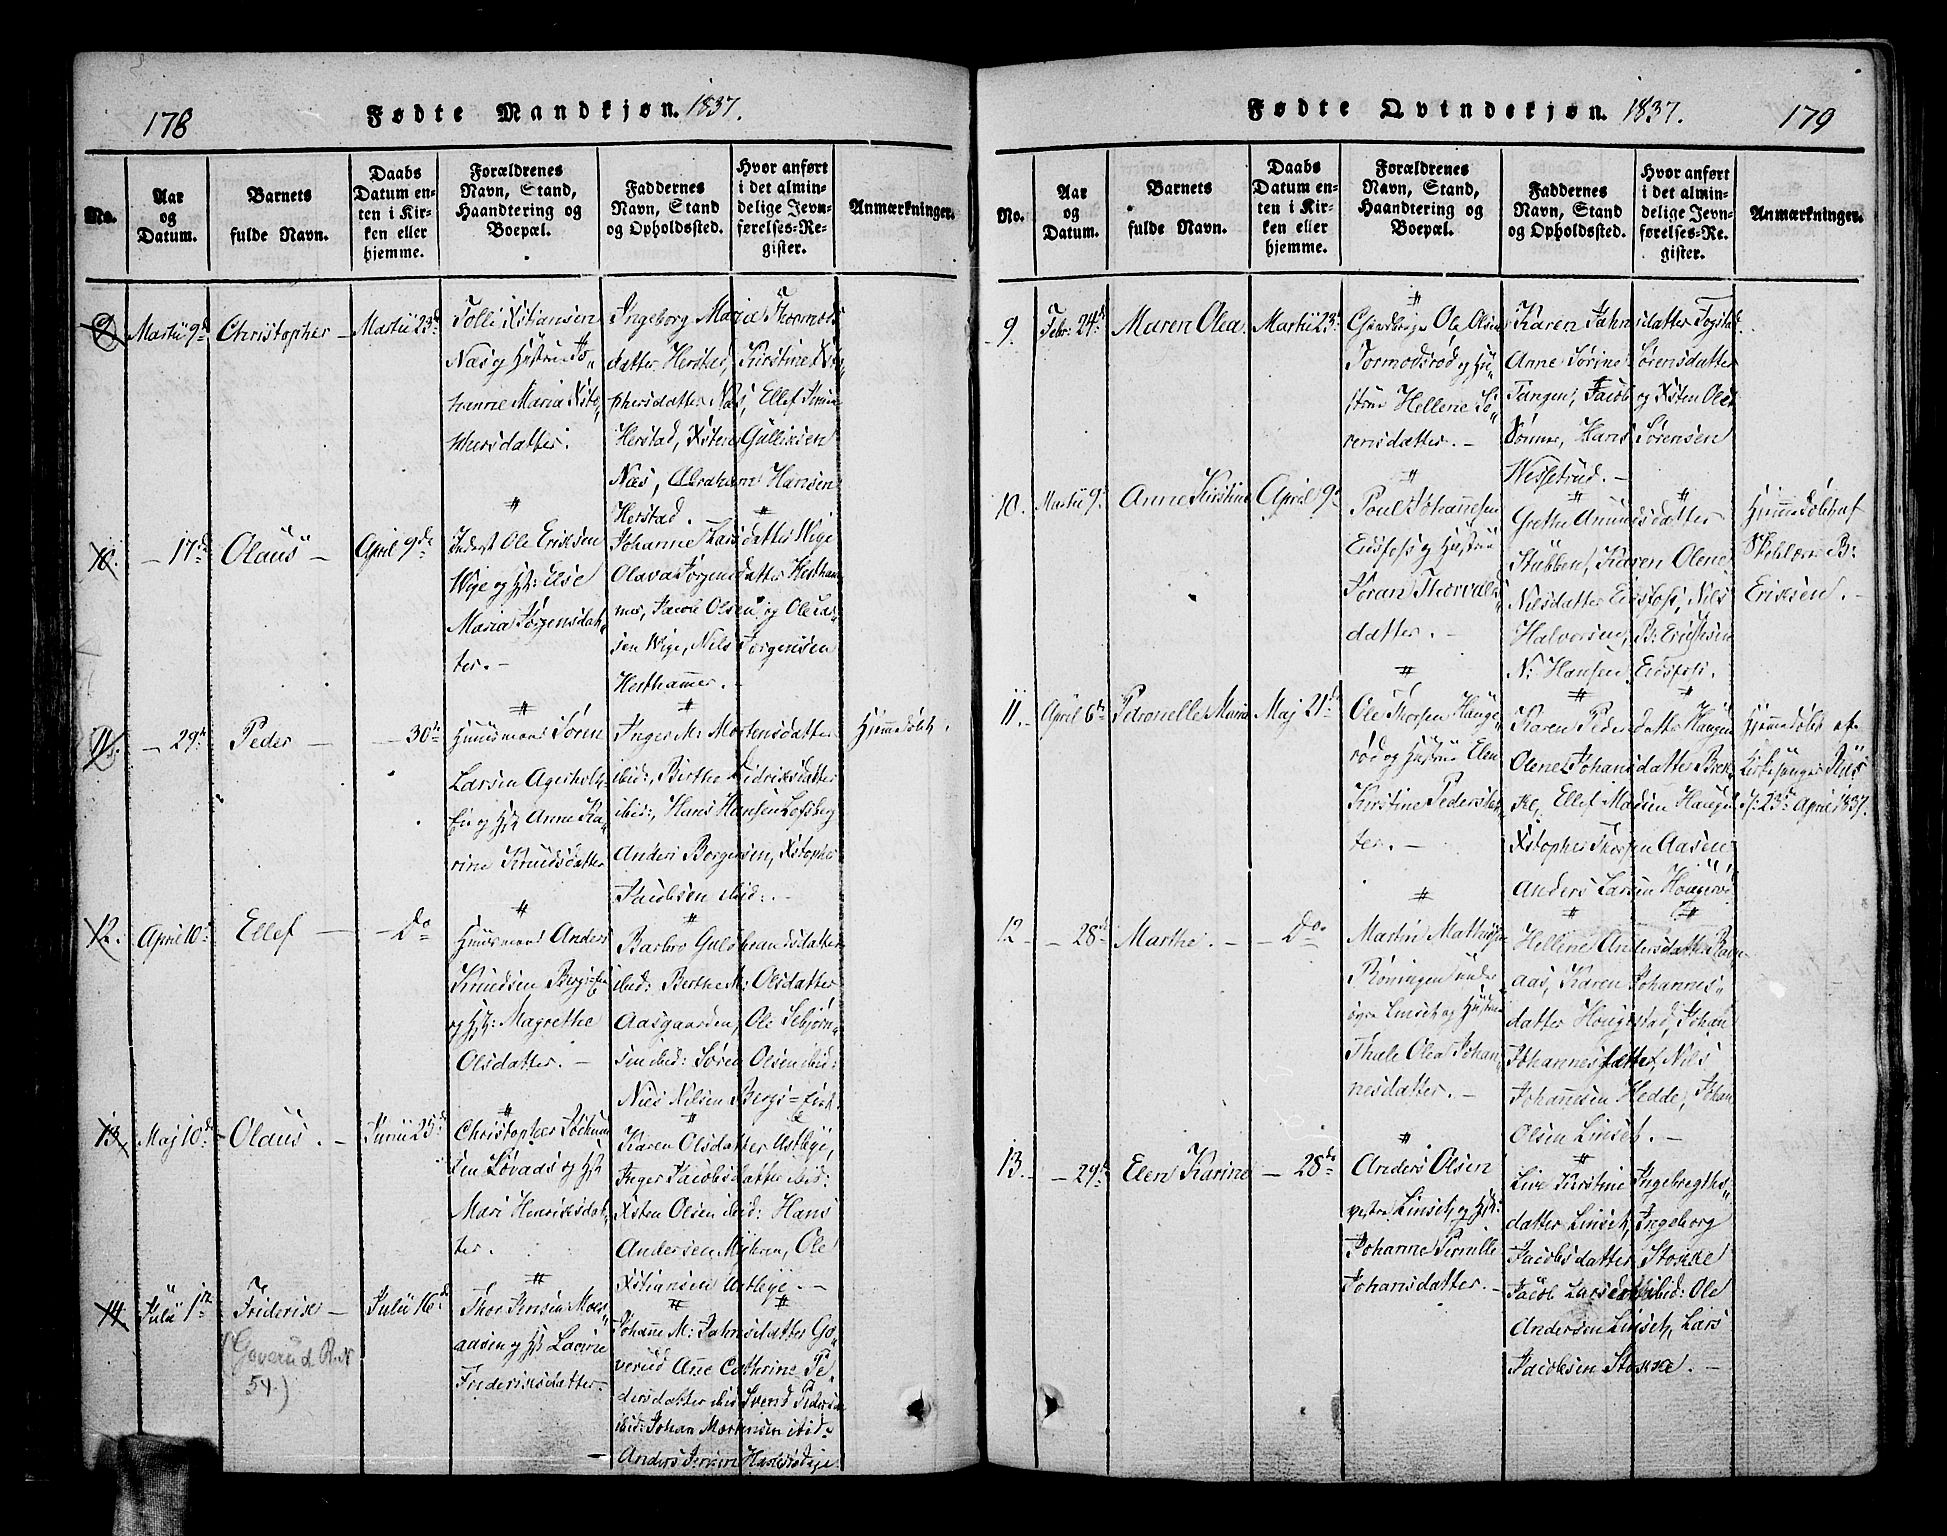 178
Fødte Mandkjøn. 1837.
No.
Aar
og
Datum.
Barnets
fulde Navn.
Daabs
Datum en-
ten i Kir-
ken eller
hjemme.
Forældrenes
Navn, Stand,
Haandtering og
Boepæl.
Faddernes
Navn, Stand
og Opholdssted.
Hvor anført
i det almin-
delige Jevn-
førelses-Re-
gister.
Anmærkninger.
9
Martii 9d
Christopher
Martii 23d
Tolli Xstiansen
Næs og Hustru Jo„
hanne Maria Xsto„
phersdatter.
Ingeborg Maria Thormods
datter Herstad, Kirstine Xsto„
phersdatter Næs, Ellef
Herstad, Xsten Gullixsen
Næs, Abraham Hansen
Herstad.
10.
17de
Olaus
April 9de
Ole Eriksen
Wige og H: Else
Maria Jørgensdat„
ter.
Johanne Larsdatter Wige
Olava Jørgensdatter Hestham
mer, Jacob Olsen og Ole Lar„
sen Wige, Nils Jørgensen
Hesthammer.
11.
29de
Peder
30de
Huusmand Søren
Larsen Agerholt
Ei: og H: Anne Ka„
rine Knudsdatter
Inger M: Mortensdatter
ibid:, Berthe Didrixsdatter
ibid:, Hans Hansen Lofsberg
Anders Borgersen, Xstopher
Jacobsen ibid:.
Hjemmedøbt.
12.
April 10de
Ellef
Do
Huusmand Anders
Knudsen Bergs-Ei
og H: Magrethe
Olsdatter.
Barbro Gulbrandsdatter
ibid: Berthe M: Olsdatter
Aasgaarden, Ole Sebjørn„
sen ibid: Søren Olsen ibid:
Niels Nilsen Bergs-Eiet
13
Maj 10de
Olaus.
Junii 25de
Christopher Jochum
sen Løvaas og H:
Mari Henriksdat„
ter.
Karen Olsdatter Ustbye,
Inger Jacobsdatter ibid:
Xsten Olsen ibid: Hans
Andersen Myhren, Ole
Xstiansen Ustbye.
14.
Julii 1ste
Friderik
(Goverud R.N
54.)
Julii 16de
Thor Jensen Moes„
aasen og H: Lavine
Frideriksdatter
Johanne M: Jahnsdatter Go„
verud Ane Cathrine Pe„
dersdatter ibid Svend Pedersen
ibid: Johan Mortensen ibid.
Anders Jensen
Fødte Qvindekjøn. 1837.
179
No.
Aar
og
Datum.
Barnets
fulde Navn.
Daabs
Datum en-
ten i Kir-
ken eller
hjemme.
Forældrenes
Navn, Stand,
Haandtering og
Boepæl.
Faddernes
Navn, Stand
og Opholdssted.
Hvor anført
i det almin-
delige Jevn-
førelses-Re-
gister.
Anmærkninger.
9.
Febr: 24de
Maren Olea
Martii 23de
Gaardbruger Ole Olsen
Tormodsrød og Hu„
strue Hellene Sø„
rensdatter.
Karen Jahnsdatter Fogstad
Anne Sørine Sørensdatter
Tangen, Jacob og Xsten Olsen
Sønme, Hans Sørensen
Wessetrud.
10.
Martii 9de
Anne Kirstine
April 9de
Poul Johannesen
Eidsfos og Hustrue
Joran Thorvalds„
datter.
Grethe Amundsdatter
Stubben, Karen Olene
Nilsdatter Eidsfos, Nils
Halvorsen, B: Erichsen
N: Hansen Eidsfos.
Hjemmedøbt af
Skolelærer B:
Eriksen.
11.
April 6te
Petronelle Maria
Maj 21de
Ole Thorsen Hauge„
rød og Hustrue Elen
Kirstine Pedersdat„
ter.
Karen Pedersdatter Haugen
Olene Johansdatter Brek„
ke, Ellef Madsen Haugen
Xstopher Thorsen Aasen
Anders Larsen
Hjemmedøbt af
Kirkesanger Riis
d: 23de April 1837.
12
28de
Marthe.
Do
Martin Mathisen
Røningen under
øvre Linset og Hustrue
Thale Olea Johan„
nesdatter.
Hellene Andersdatter Ravn„
aas, Karen Johannes„
datter Hougestad, Johan
Johannesdatter, Nils
Johannesen Hedde, Johan
Olsen Linset.
13.
29de
Elen Karine
28de
Anders Olsen
vestre Linset og H:
Johanne Pernille
Johansdatter.
Live Kirstine Ingebregths„
datter Linset, Ingeborg
Jacobsdatter Stokke
Jacob Larsen ibid: Ole
Andersen Linset, Lars
Jacobsen Stokke.